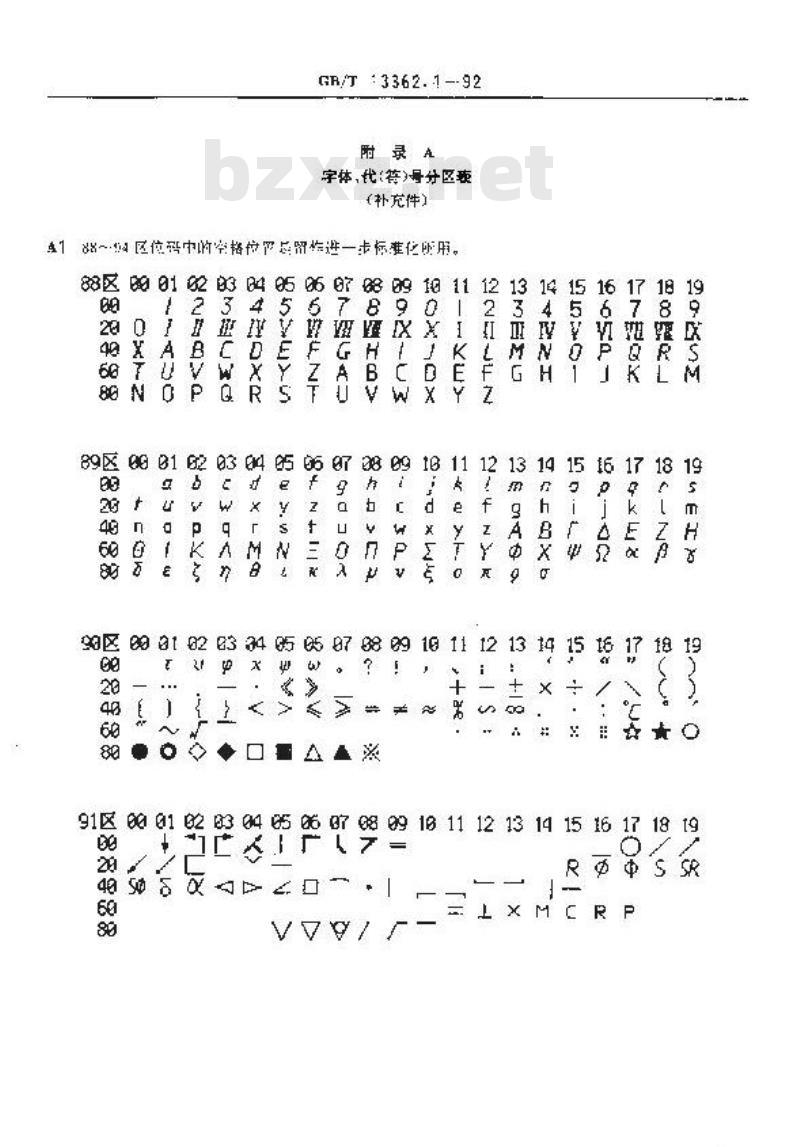 GB/T 13362.1-92
bzxz.net
附录 A
字体、代(符)号分区表
(补充件)
A1 88~94区位码中的空格位置是留作进一步标准化所用。
88区 00 01 02 03 04 05 06 07 08 09 10 11 12 13 14 15 16 17 18 19
00 1 2 3 4 5 6 7 8 9 0 1 2 3 4 5 6 7 8 9
20 0 Ⅰ Ⅱ Ⅲ Ⅳ Ⅴ Ⅵ Ⅶ Ⅷ Ⅸ Ⅹ Ⅰ Ⅱ Ⅲ Ⅳ Ⅴ Ⅵ Ⅶ Ⅷ Ⅸ
40 X A B C D E F G H I J K L M N O P Q R S
60 T U V W X Y Z A B C D E F G H I J K L M
80 N O P Q R S T U V W X Y Z
89区 00 01 02 03 04 05 06 07 08 09 10 11 12 13 14 15 16 17 18 19
00 a b c d e f g h i j k l m n o p q r s
20 t u v w x y z a b c d e f g h i j k l m
40 n o p q r s t u v w x y z Α Β Γ Δ Ε Ζ Η
60 Θ Ι Κ Λ Μ Ν Ξ Ο Π Ρ Σ Τ Υ Φ Χ Ψ Ω α β γ
80 δ ε ζ η θ ι κ λ μ ν ξ ο π ρ σ
90区 00 01 02 03 04 05 06 07 08 09 10 11 12 13 14 15 16 17 18 19
00 τ υ φ χ ψ ω 。 ? ! , 、 ; : ‘ ’ “ ” ( )
20 — … . — · 《 》 _ + - ± × ÷ / \ ( )
40 [ ] { } < > ≤ ≥ = ≠ ≈ % ∽ ∞ . · : ℃ ° ′
60 ″ ~ √ ☆ ★ ○
80 ● ◎ ◇ ◆ □ ■ △ ▲ ※
91区 00 01 02 03 04 05 06 07 08 09 10 11 12 13 14 15 16 17 18 19
00
20 R Φ S SR
40 SΦ δ α
60 = ⊥ × M C R P
80